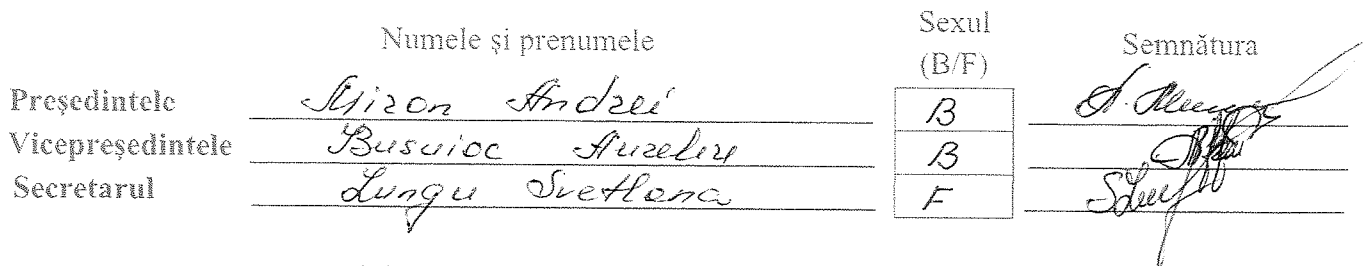 Numele și prenumele Sexul (B/F) Semnătura
Președintele Miron Andrei B
Vicepreședintele Busuioc Aureliu B
Secretarul Lungu Svetlana F